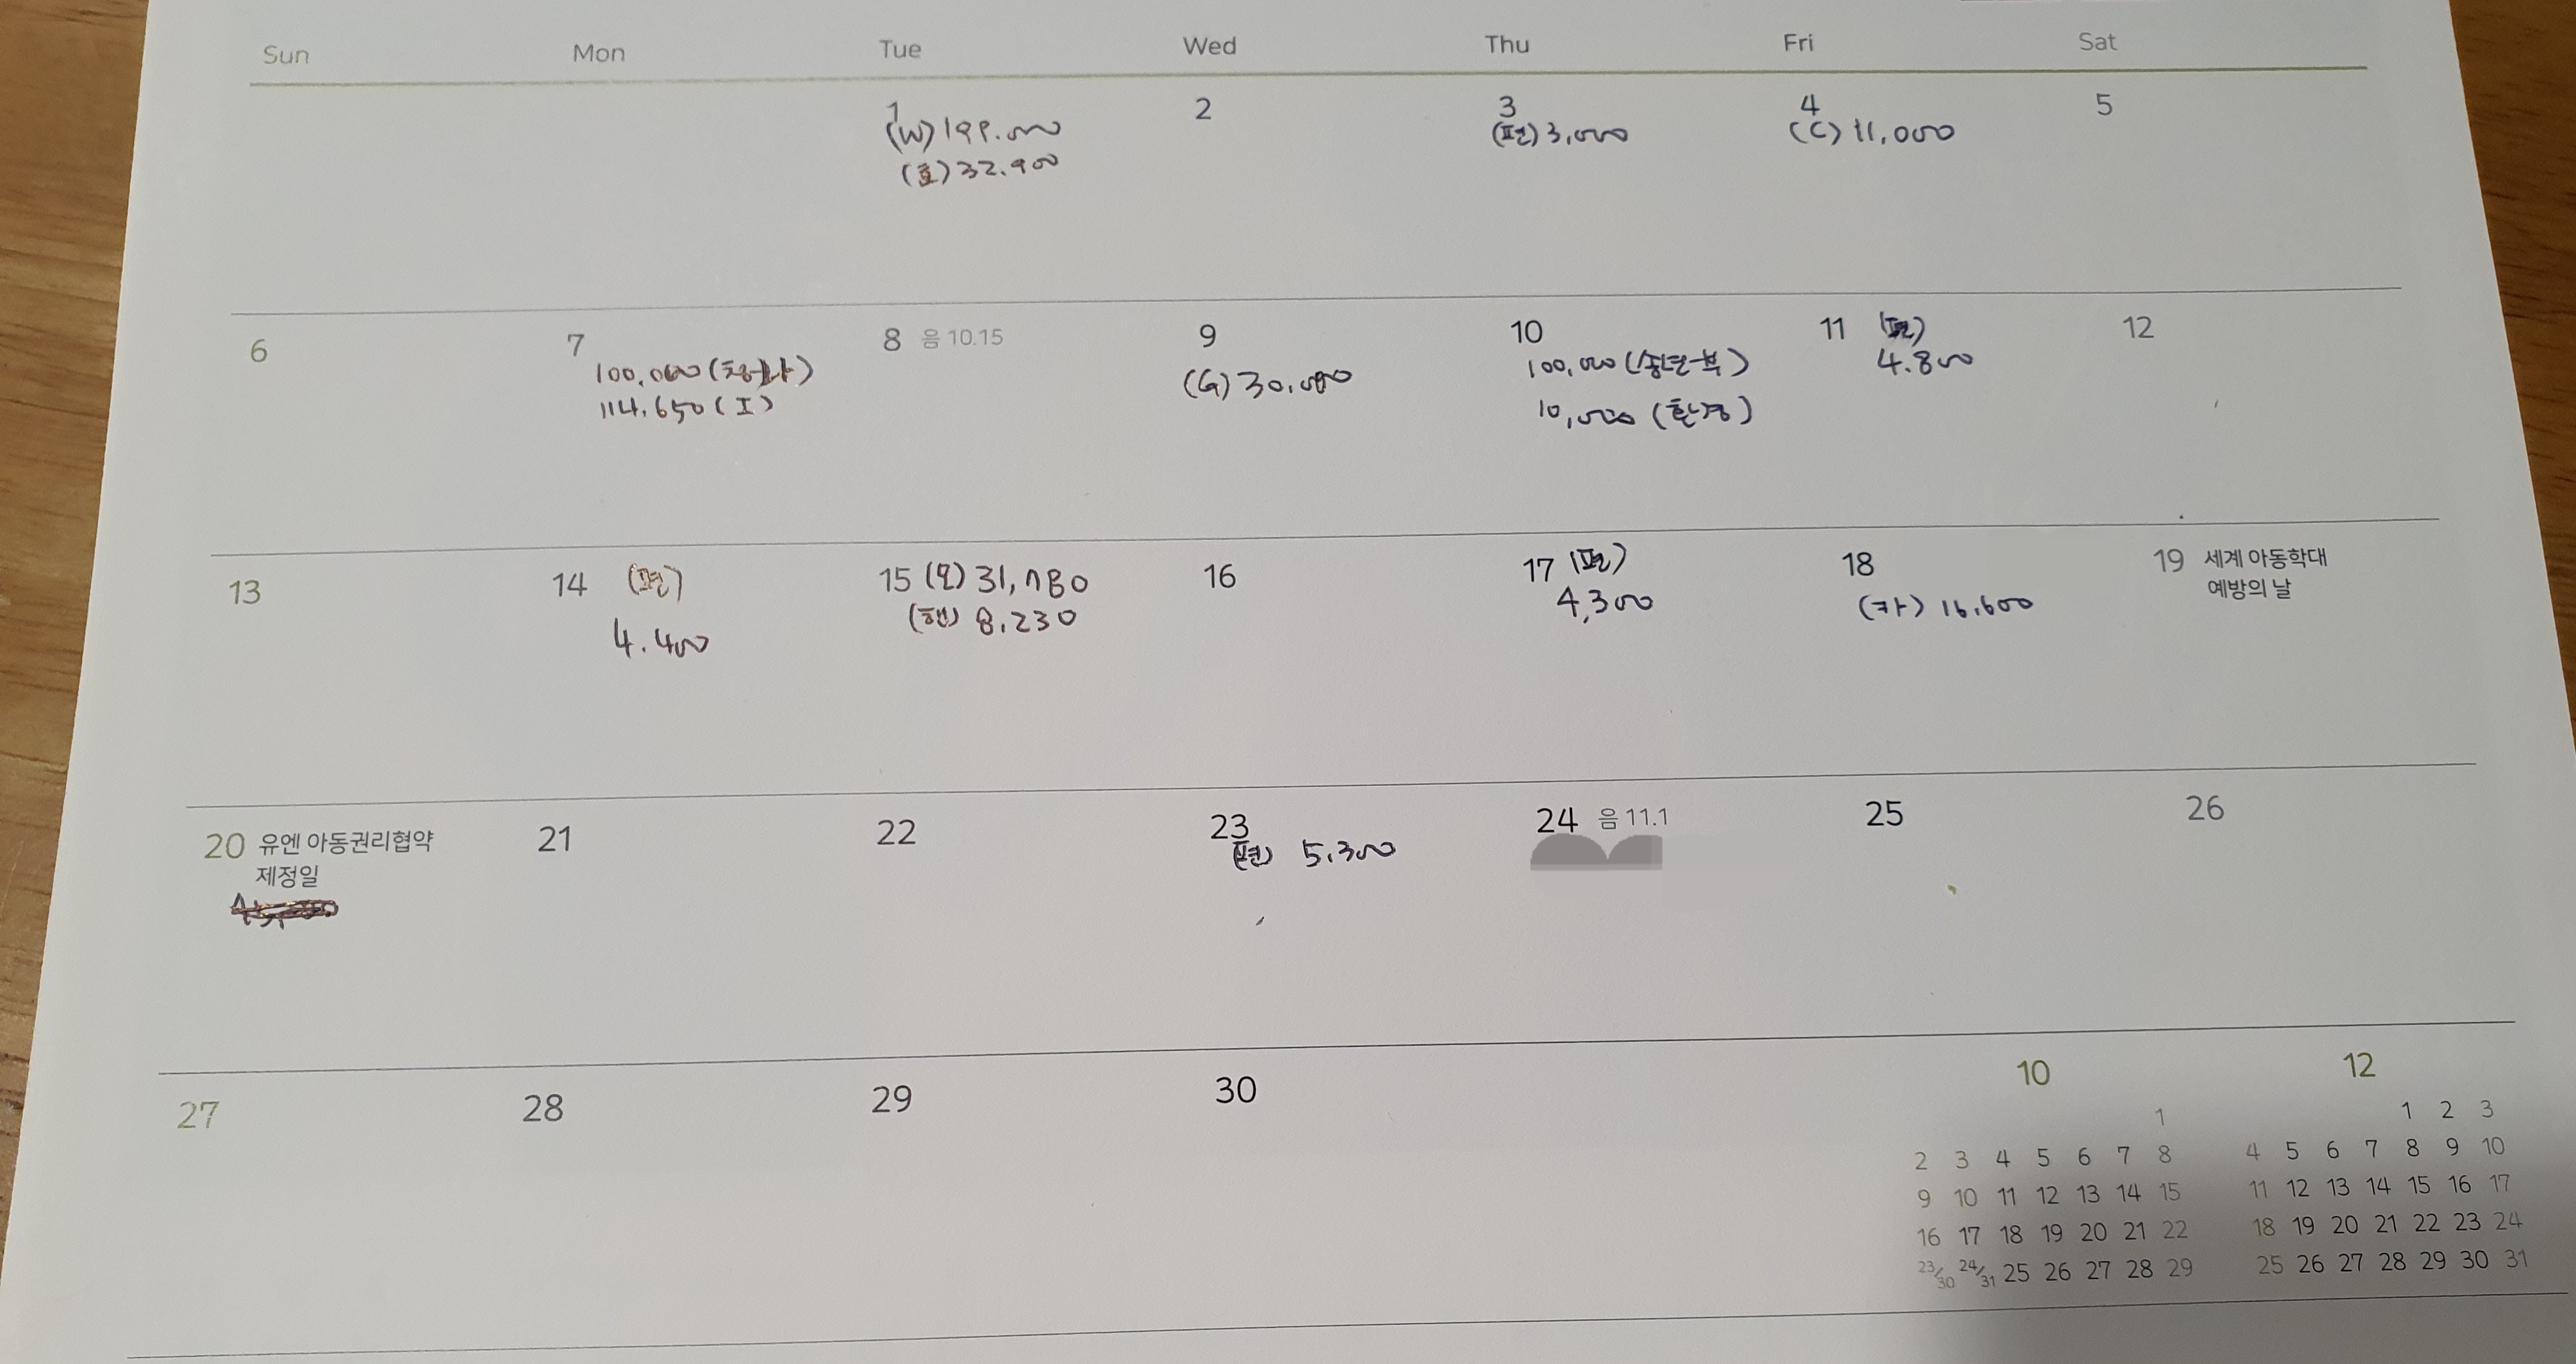 Sun Mon Tue Wed Thu Fri Sat
1 2 3 4 5
(W) 199.000 (편) 3,000 (C) 11,000
32.900
6 7 8 음 10.15 9 10 11 (편) 12
100,000 (G) 30,000 100,000 4.800
114,650 (I) 10,000 (환경)
13 14 (편) 15 31,780 16 17 (편) 18 19 세계 아동학대
4.400 8,230 4,300 (카) 16,600 예방의 날
20 유엔 아동권리협약 21 22 23 24 음 11.1 25 26
제정일 (편) 5,300
27 28 29 30
10 12
1 1 2 3
2 3 4 5 6 7 8 4 5 6 7 8 9 10
9 10 11 12 13 14 15 11 12 13 14 15 16 17
16 17 18 19 20 21 22 18 19 20 21 22 23 24
23/30 24/31 25 26 27 28 29 25 26 27 28 29 30 31